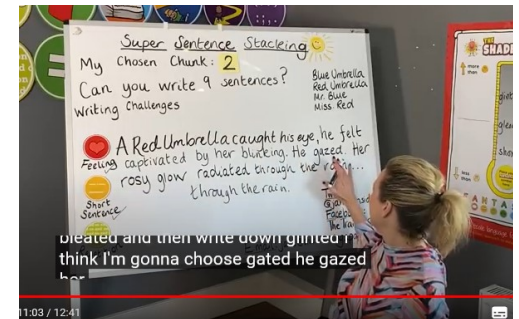 Super Sentence Stacking
My Chosen Chunk: 2
Can you write 9 sentences?
Writing Challenges
Blue Umbrella
Red Umbrella
Mr. Blue
Miss. Red
A Red Umbrella caught his eye, he felt
captivated by her blinking. He gazed. Her
rosy glow radiated through the
through the rain.
Feeling
Short
Sentence
THE
SHADE
more
than
less
than
bleated and then write down glinted I
think I'm gonna choose gated he gazed
her
11:03 / 12:41